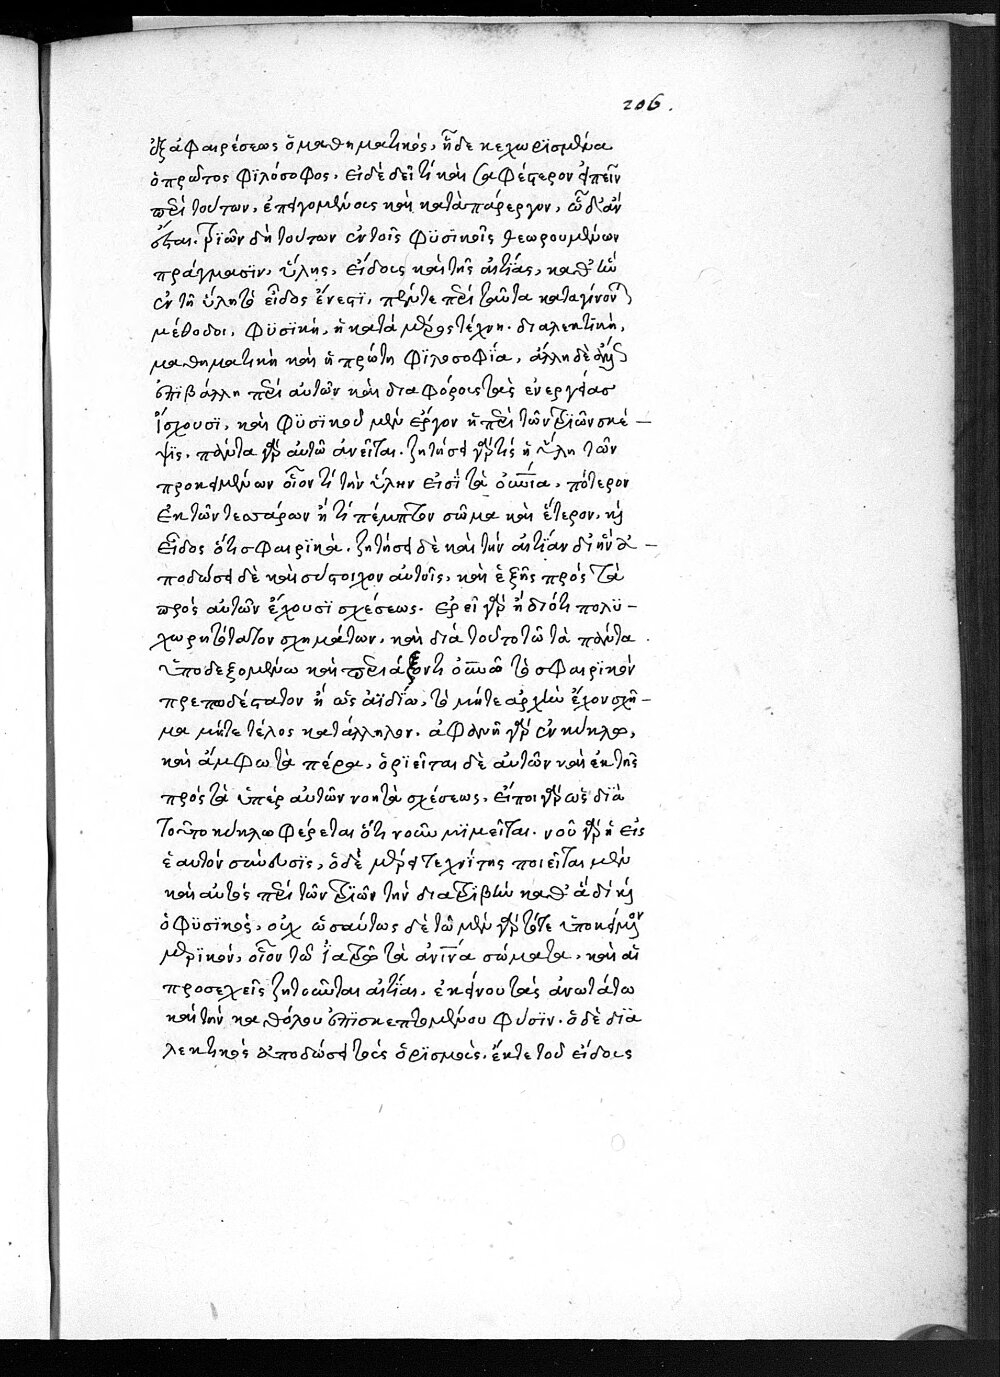 206.
ἐξ ἀφαιρέσεως ὁ μαθηματικός, ᾗ δὲ κεχωρισμένα
ὁ πρῶτος φιλόσοφος. εἰ δὲ δεῖ τί καὶ σαφέστερον εἰπεῖν
περὶ τούτων, ἐπειγομένοις καὶ κατὰ πάρεργον, ὧδ' ἂν
ἔσται. τριῶν δὴ τούτων ἐν τοῖς φυσικοῖς θεωρουμένων
πράγμασιν, ὕλης, εἴδους καὶ τῆς αἰτίας, καθ' ἣν
ἐν τῇ ὕλῃ τὸ εἶδος ἔνεστι, πέντε περὶ ταῦτα καταγίνονται
μέθοδοι, φυσικὴ, ἡ κατὰ μέρος τέχνη. διαλεκτικὴ,
μαθηματικὴ καὶ ἡ πρώτη φιλοσοφία, ἄλλη δὲ ἄλλως
ἐπιβάλλη περὶ αὐτῶν καὶ διαφόρους τὰς ἐνεργείας
ἴσχουσι, καὶ φυσικοῦ μὲν ἔργον ἡ περὶ τῶν τριῶν σκέ-
ψις. πάντα γὰρ αὐτῷ ἀνεῖται. ζητήσει γὰρ τίς ἡ ὕλη τῶν
προκειμένων οἷον τί τὴν ὕλην εἰσὶ τὰ οὐράνια, πότερον
ἐκ τῶν τεσσάρων ἤ τι πέμπτον σῶμα καὶ ἕτερον. καὶ
εἶδος ὅτι σφαιρικά. ζητήσει δὲ καὶ τὴν αἰτίαν δι' ἣν ἀ-
ποδώσει δὲ καὶ σύστοιχον αὐτοῖς, καὶ ἑξῆς πρὸς τὰ
πρὸς αὐτῶν ἔχουσι σχέσεως. ἐρεῖ γὰρ ἢ διότι πολυ-
χωρητότατον σχημάτων, καὶ διὰ τοῦτο τῷ τὰ πάντα
ὑποδεξομένῳ καὶ περιάξοντι οὐρανῷ τὸ σφαιρικὸν
πρεπωδέστατον ἢ ὡς ἀϊδίῳ, τὸ μήτε ἀρχὴν ἔχον σχῆ-
μα μήτε τέλος κατάλληλον. ἀφανῆ γὰρ ἐν κύκλῳ,
καὶ ἄμφω τὰ πέρα, ὁριεῖται δὲ αὐτῶν καὶ ἐκ τῆς
πρὸς τὰ ὑπὲρ αὐτῶν νοητὰ σχέσεως. εἴποι γὰρ ὡς διὰ
τοῦτο κύκλῳ φέρεται ὅτι νοῦν μιμεῖται. νοῦ γὰρ ἡ εἰς
ἑαυτὸν σύννευσις, ὁ δὲ μέρει τεχνίτης ποιεῖται μὲν
καὶ αὐτὸς περὶ τῶν τριῶν τὴν διατριβὴν καθ' ἃ δὴ καὶ
ὁ φυσικός, οὐχ ὡσαύτως δὲ τῷ μὲν γὰρ τό τε ὑποκείμενον
μερικόν, οἷον τῷ ἰατρῷ τὰ ἀνθρώπινα σώματα, καὶ αἱ
προσεχεῖς ζητοῦνται αἰτίαι, ἐκείνου τὰς ἀνωτάτω
καὶ τὴν καθόλου ἐπισκεπτομένου φύσιν. ὁ δὲ δια
λεκτικὸς ἀποδώσει τοὺς ὁρισμούς. ἔκ τε τοῦ εἴδους